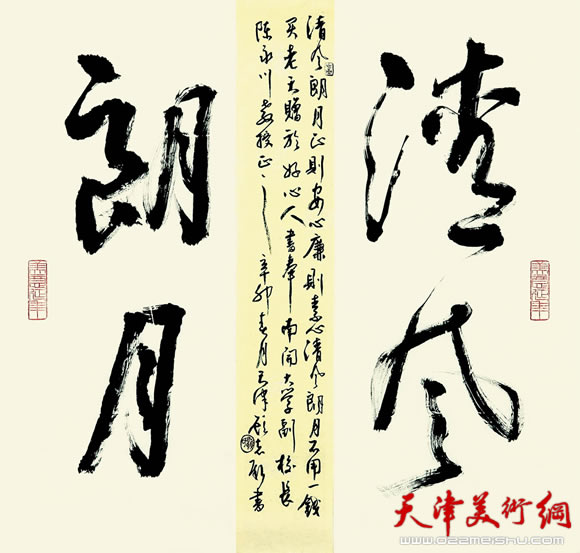 清风
朗月
清风朗月正则安心廉则素心清风朗月不用一钱
买老天赠于好心人书奉南开大学副校长
陈永川教授正之辛卯春月天津
书
天津美術網
www.022meishu.com